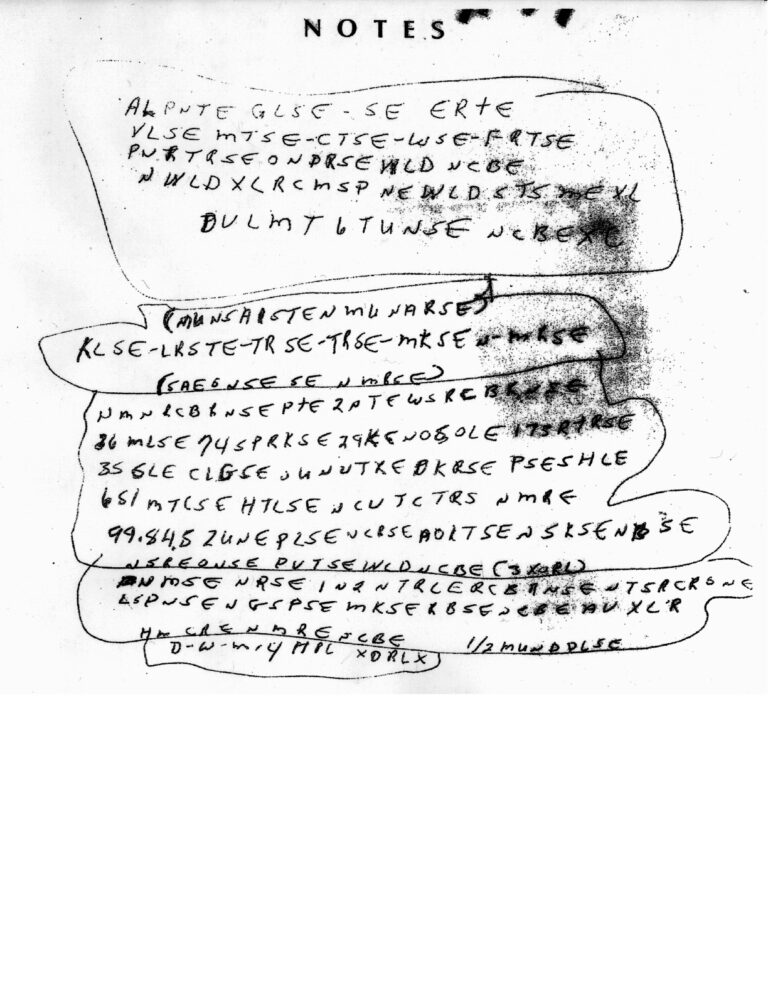 NOTES
ALPNTE GLSE-SE ERTE
VLSE MTSE-CTSE-WSE-FRTSE
PNRTRSEONDRSEWLD NCBE
NWLDXLRCMSP NEWLDSTS MEXL
DULMT6TUNSE NCBEXC
(MUNSAISTENMUNARSE)
KLSE-LRSTE-TRSE-TRSE-MKSEN-MRSE
(SAEGNSESE N MRSE)
NMNRCBRNSEPTE2PTEWSRCBRNSE
36MLSE74SPRKSE29KENOSOLE173RTRSE
35GLE CLGSE UNUTXEDKRSE PSESHLE
651MTCSE HTLSE NCUTCTRS NMRE
99.84.52UNEPLSENCRSEAOLTSENSKSENBSE
NSREONSE PUTSEWLDNCBE(3XORL)
NMSE NRSE IN2NTRLERCBRNSENTSRCRONE
LSPNSENGSPSE MKSERBSENCBEAUXLR
HM CRENMRENCBE 1/2MUNDDLSE
D-W-M-4MPL XDRLX